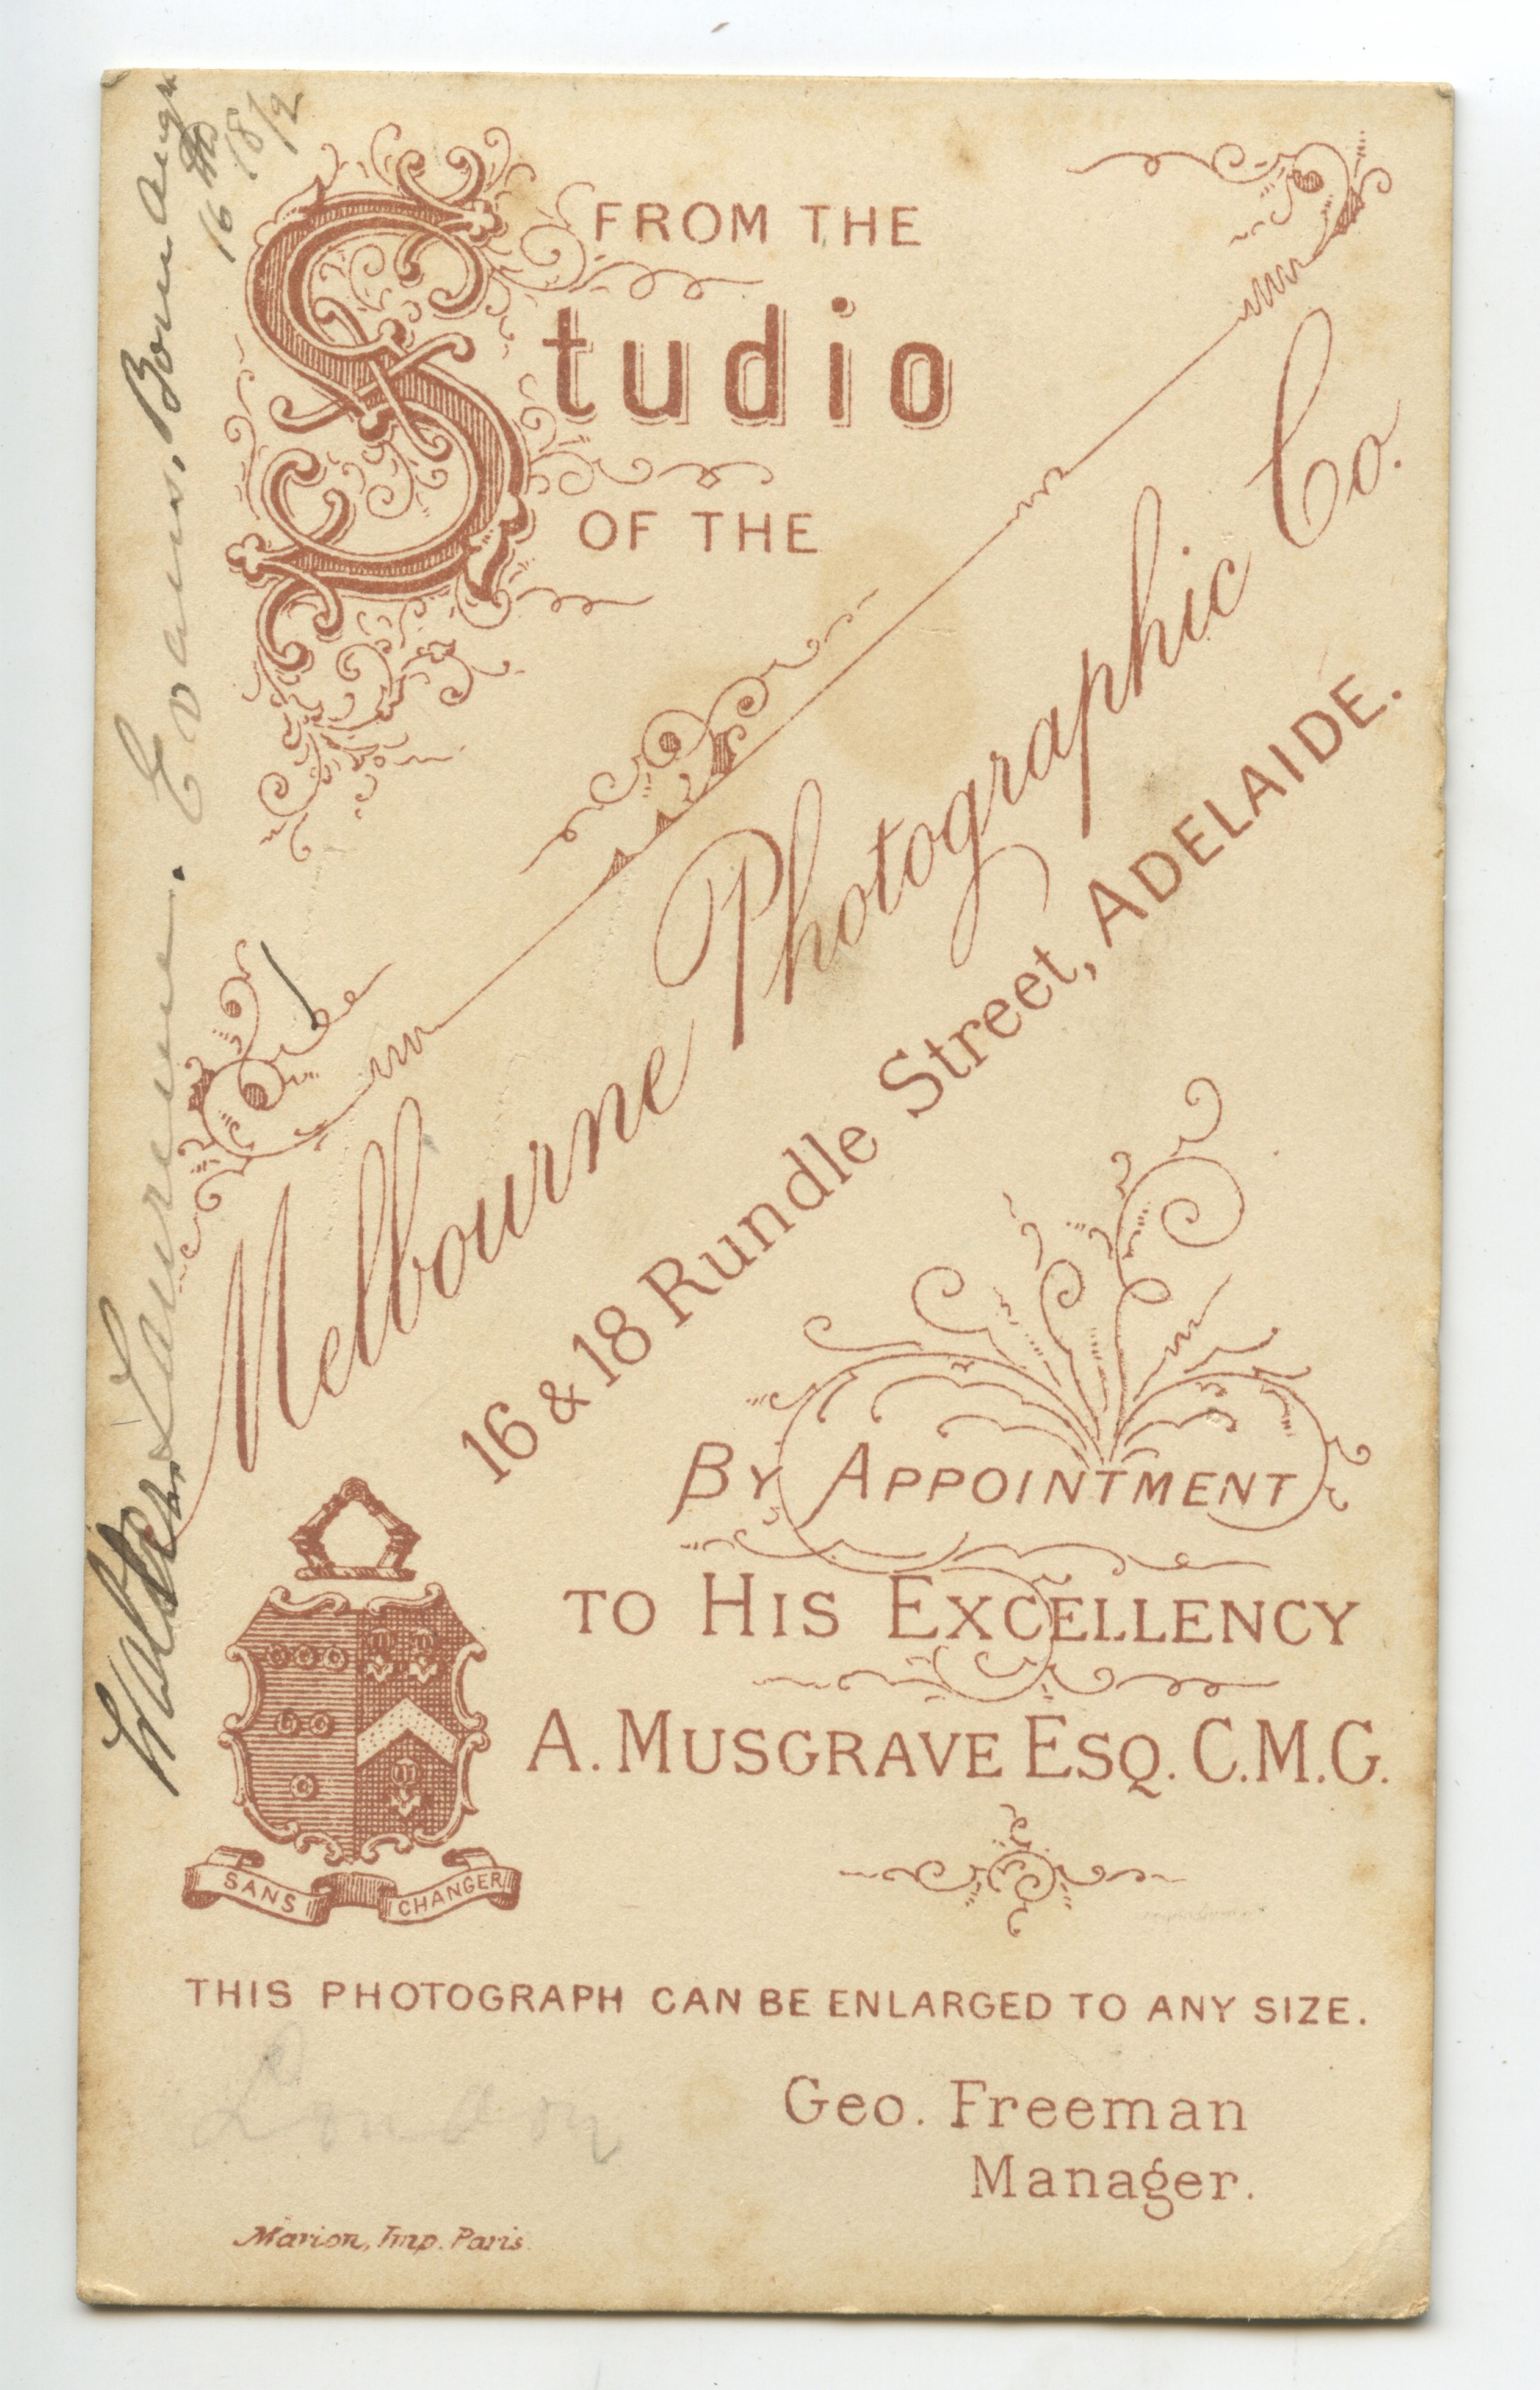 FROM THE
Studio
OF THE
Melbourne Photographic Co.
16 & 18 Rundle Street, ADELAIDE.
BY APPOINTMENT
TO HIS EXCELLENCY
A. MUSGRAVE ESQ. C.M.G.
SANS CHANGER
THIS PHOTOGRAPH CAN BE ENLARGED TO ANY SIZE.
Geo. Freeman
Manager.
Marion, Imp. Paris.
Walter Evans. Born Aug
16 1872